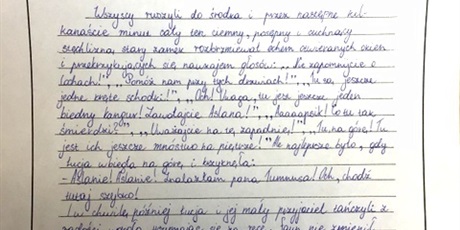 Wszyscy ruszyli do środka i przez następne kil-
kanaście minut cały ten ciemny, posępny i cuchnący
stęchlizną stary zamek rozbrzmiewał echem otwieranych okien
i przekrzykujących się nawzajem głosów: „Nie zapomnijcie o
lochach!", „Pomóż nam przy tych drzwiach!", „Tu są jeszcze
jedne kręte schodki!", „Och! Uwaga, tu jest jeszcze jeden
biedny kangur! Zawołajcie Aslana!", „Aaaapsik! Co tu tak
śmierdzi?", „Uważajcie na tę zapadnię!", „Tu, na górę! Tu
jest ich jeszcze mnóstwo na piętrze!" Ale najlepsze było, gdy
Łucja wbiegła na górę i krzyknęła:
- Aslanie! Aslanie! Znalazłam pana Tumnusa! Och, chodź
tutaj szybko!
I w chwilę później Łucja i jej mały przyjaciel tańczyli z
radości, trzymając się za ręce. Faun nie zmienił